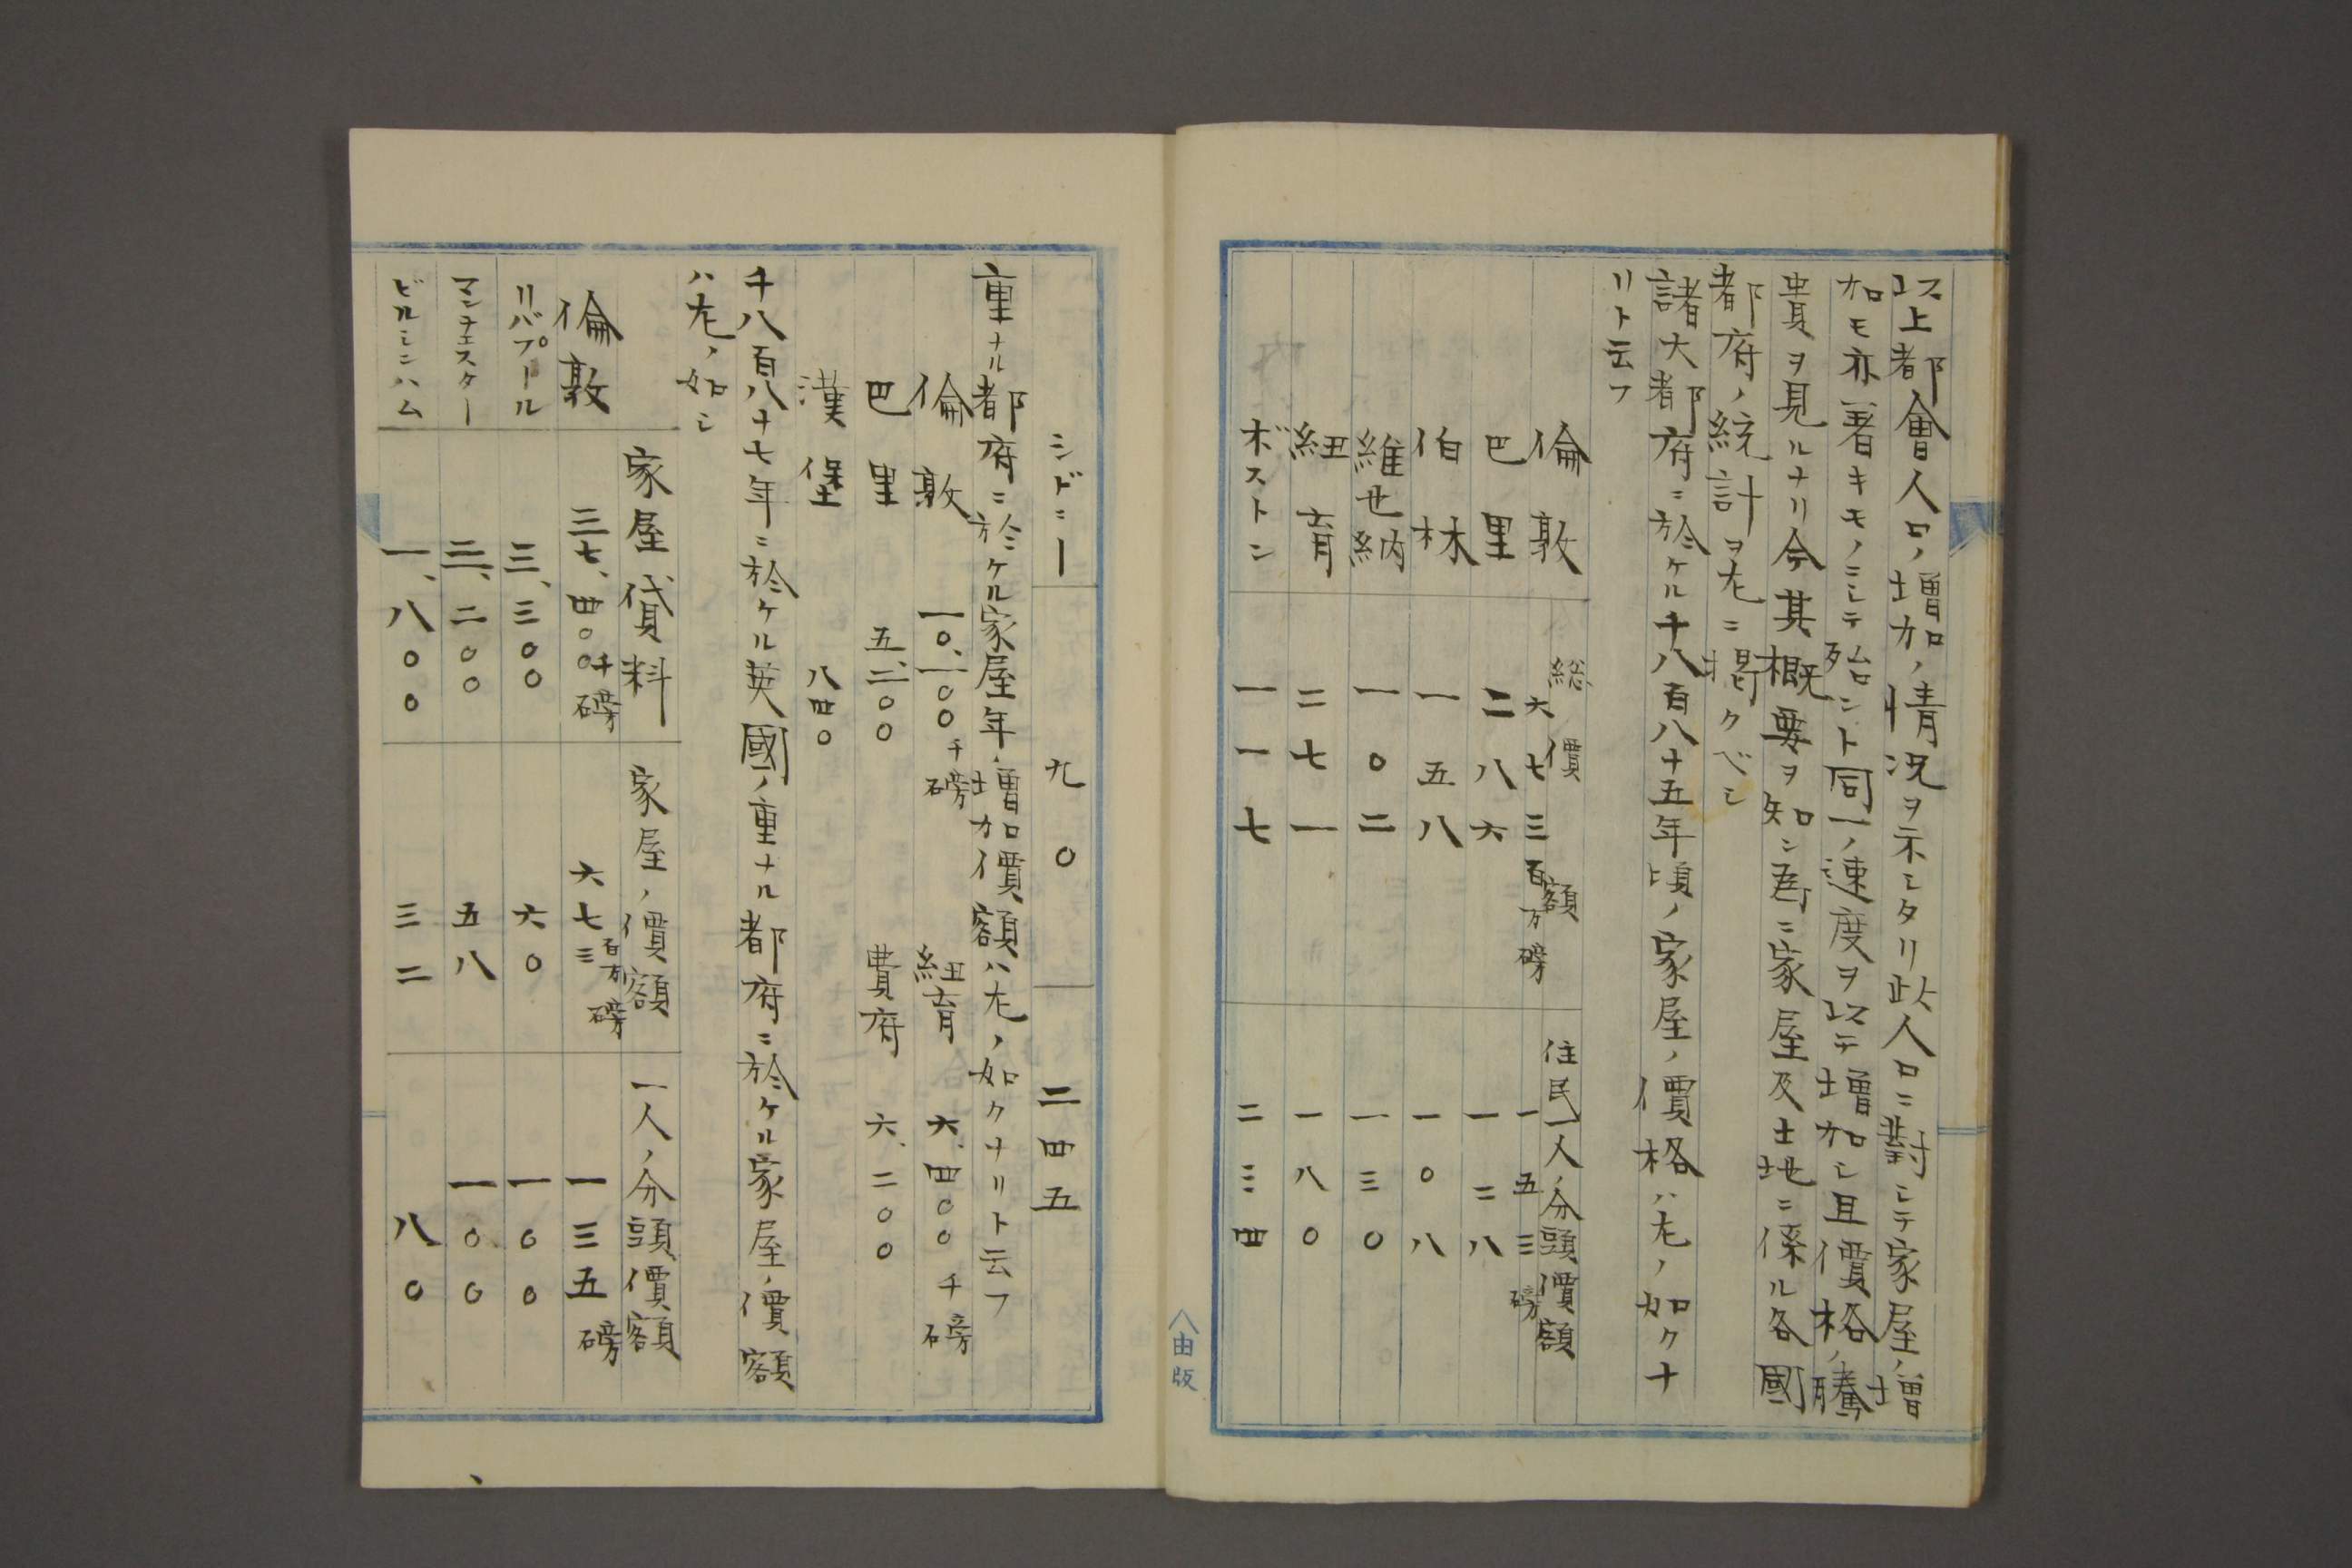 以上都會人口ノ増加ノ情況ヲ示シタリ此人口ニ對シテ家屋ノ増
加モ亦著キモノニシテ殆ント同一ノ速度ヲ以テ増加シ且價格ノ騰
貴ヲ見ルナリ今其概要ヲ知ン為ニ家屋及土地ニ係ル各國
都府ノ統計ヲ左ニ掲クベシ
諸大都府ニ於ケル千八百八十五年頃ノ家屋ノ價格ハ左ノ如クナ
リト云フ
総價額 住民一人ノ分頭價額
倫敦 六七三百万磅 一五三磅
巴里 二八六 一二八
伯林 一五八 一〇八
維也納 一〇二 一三〇
紐育 二七一 一八〇
ボストン 一一七 二三四
シドニー 九〇 二四五
重ナル都府ニ於ケル家屋年ノ増加價額ハ左ノ如クナリト云フ
倫敦 一〇、一〇〇千磅 紐育 六、四〇〇千磅
巴里 五、二〇〇 費府 六、二〇〇
漢堡 八四〇
千八百八十七年ニ於ケル英國ノ重ナル都府ニ於ケル家屋ノ價額
ハ左ノ如シ
家屋貸料 家屋ノ價額 一人ノ分頭價額
倫敦 三七、四〇〇千磅 六七三百万磅 一三五磅
リバプール 三、三〇〇 六〇 一〇〇
マンチェスター 三、二〇〇 五八 一〇〇
ビルミンハム 一、八〇〇 三二 八〇
由版